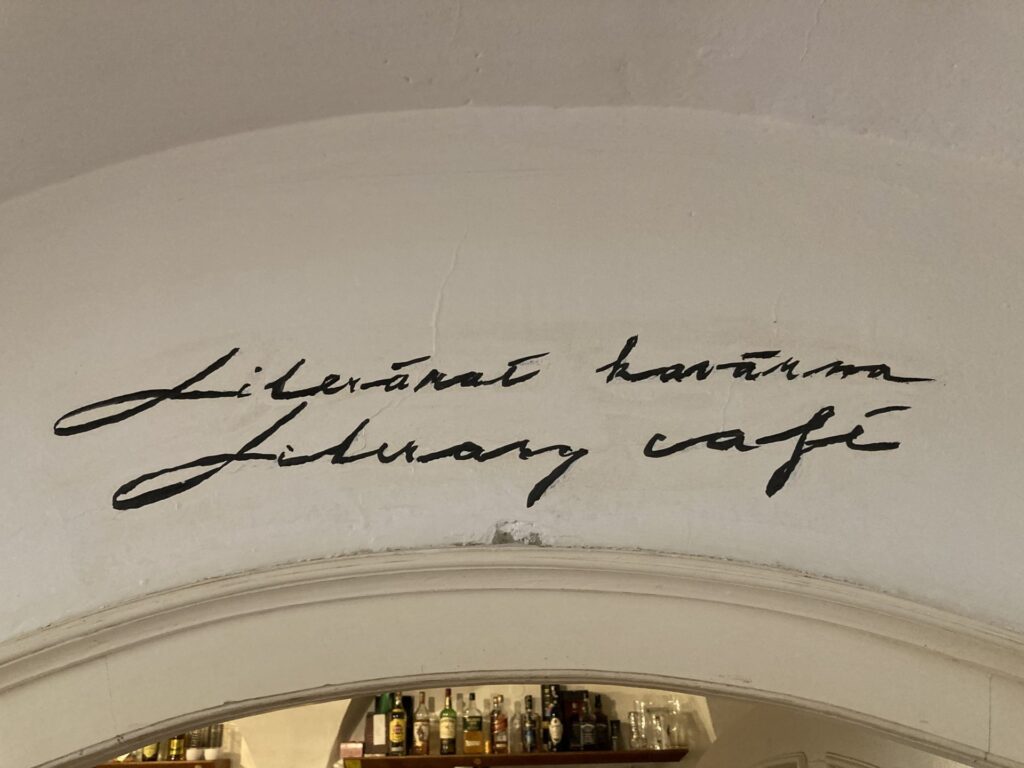 Literární kavárna
Literary café